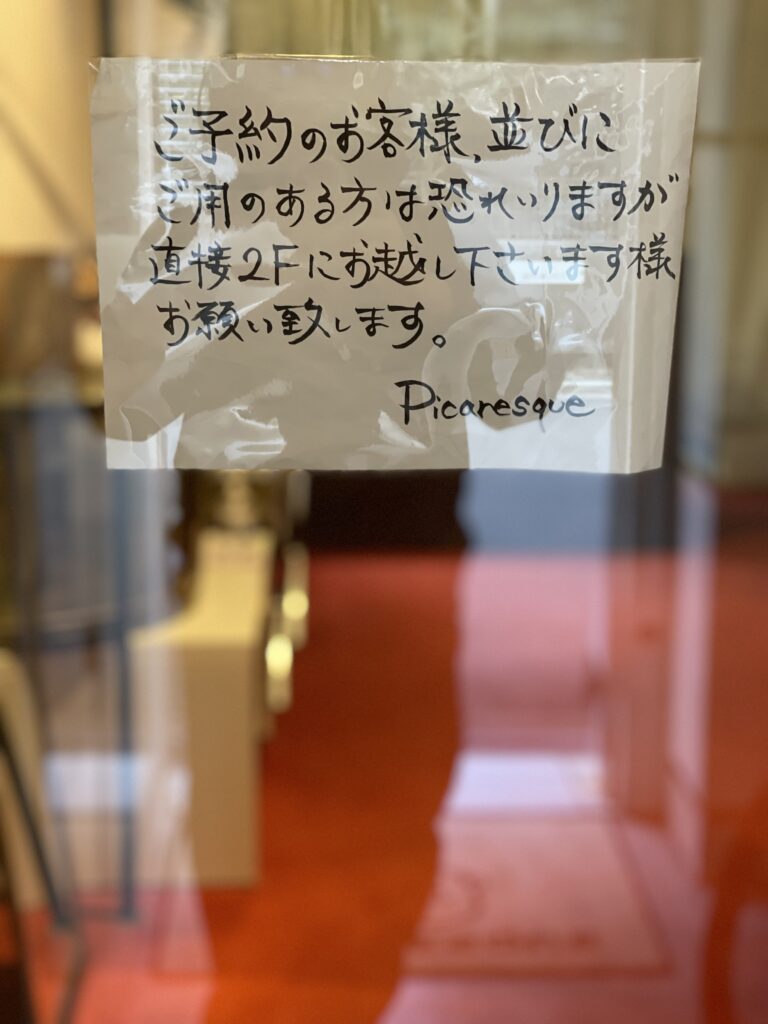 ご予約のお客様、並びに
ご用のある方は恐れいりますが
直接2Fにお越し下さいます様
お願い致します。
Picaresque